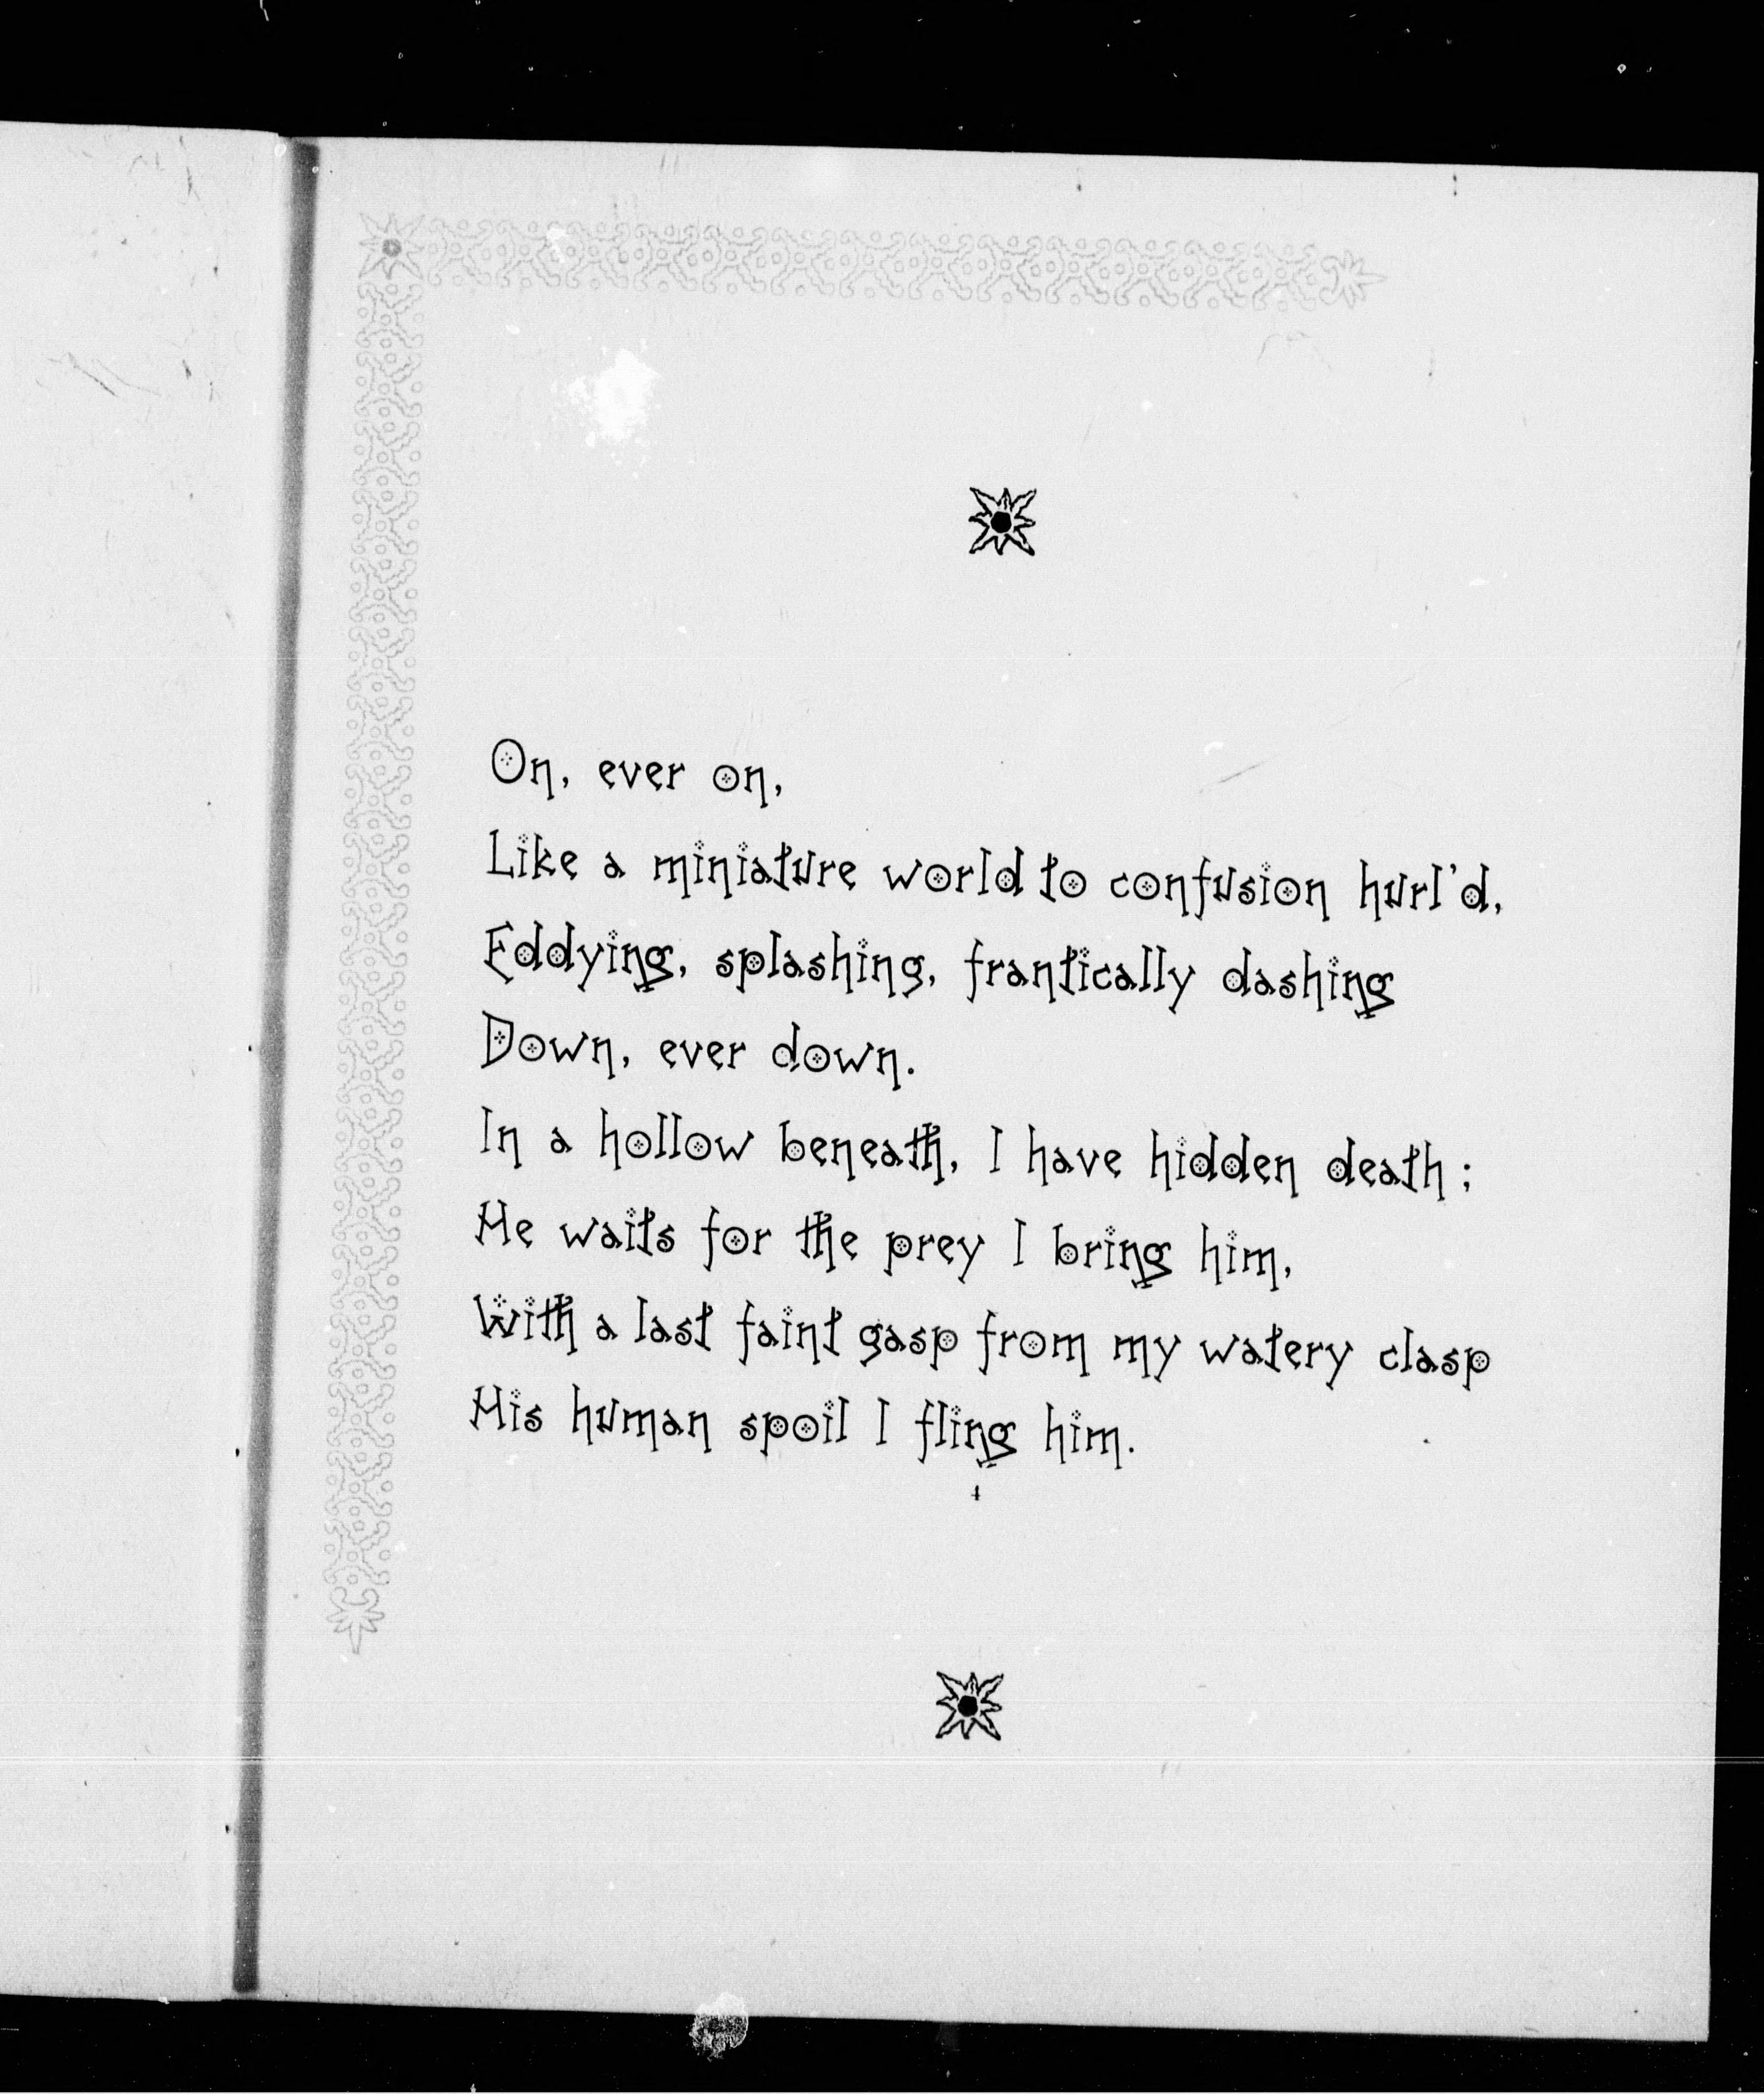 On, ever on,
Like a miniature world to confusion hurl'd,
Eddying, splashing, frantically dashing
Down, ever down.
In a hollow beneath, I have hidden death;
He waits for the prey I bring him,
With a last faint gasp from my watery clasp
His human spoil I fling him.